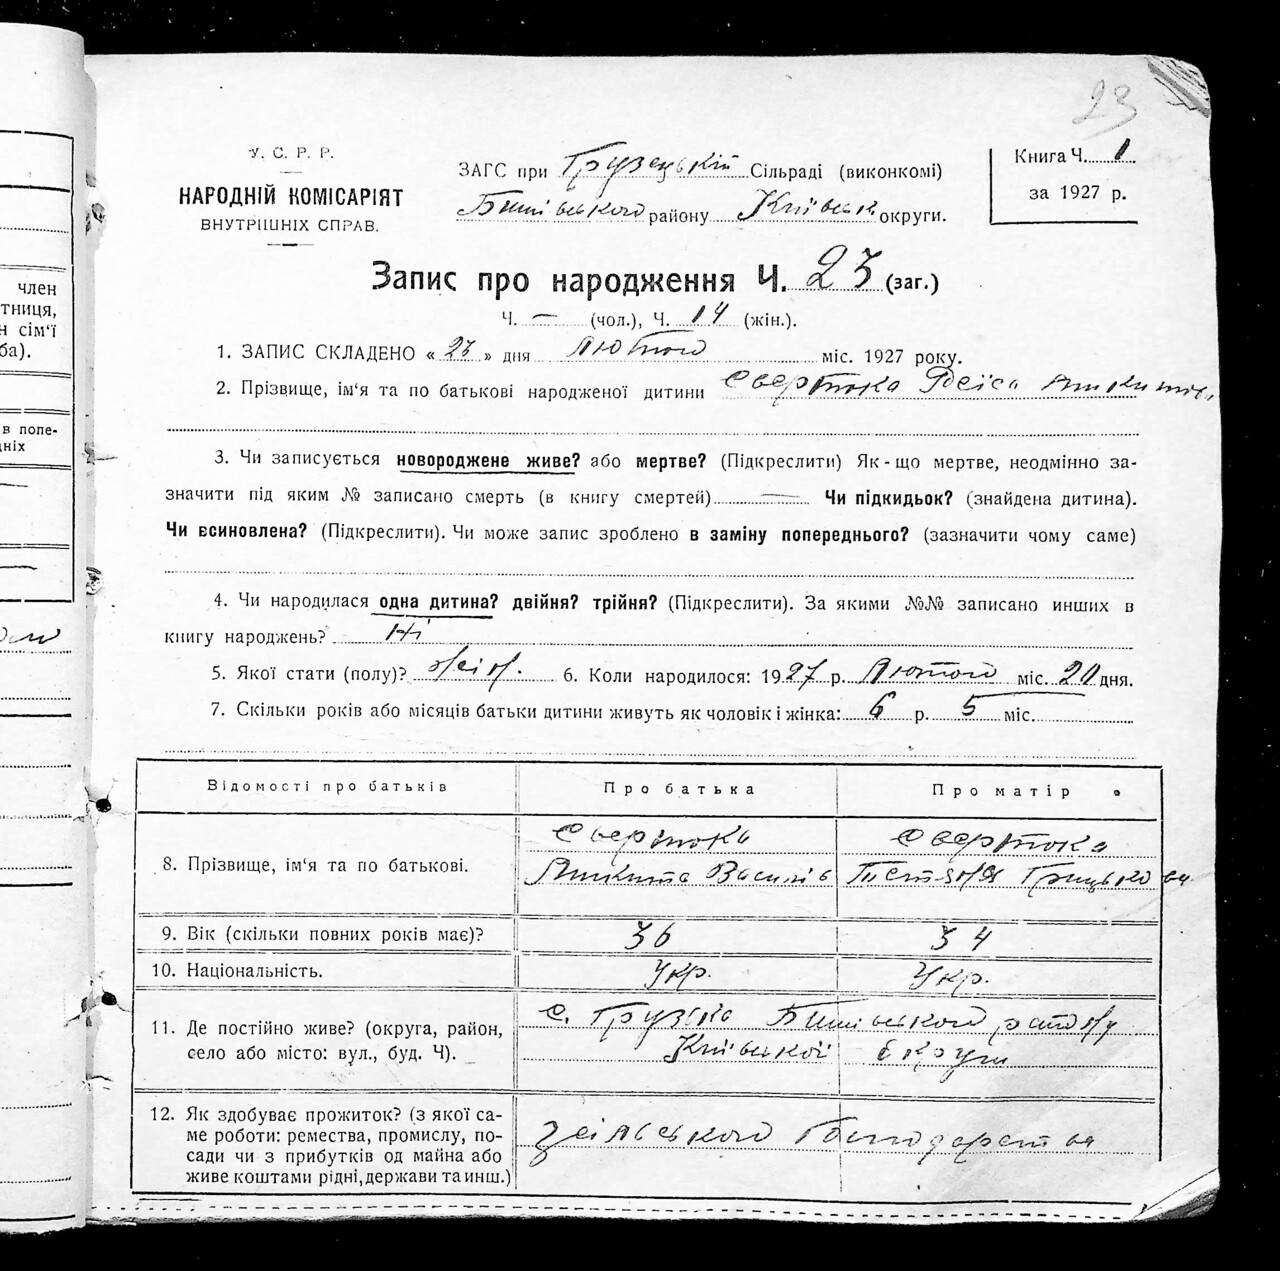 23
У. С. Р. Р.
НАРОДНІЙ КОМІСАРІЯТ
ВНУТРІШНІХ СПРАВ.
ЗАГС при Грузецькій Сільраді (виконкомі)
Бишівського району Київськ округи.
Книга Ч. 1
за 1927 р.
Запис про народження Ч. 23 (заг.)
Ч. — (чол.), Ч. 14 (жін.).
1. ЗАПИС СКЛАДЕНО « 23 » дня Лютого міс. 1927 року.
2. Прізвище, ім'я та по батькові народженої дитини Свертока Раїса Микитівн
3. Чи записується новороджене живе? або мертве? (Підкреслити) Як-що мертве, неодмінно за-
значити під яким № записано смерть (в книгу смертей) — Чи підкидьок? (знайдена дитина).
Чи всиновлена? (Підкреслити). Чи може запис зроблено в заміну попереднього? (зазначити чому саме)
4. Чи народилася одна дитина? двійня? трійня? (Підкреслити). За якими №№ записано инших в
книгу народжень? Ні
5. Якої стати (полу)? жін. 6. Коли народилося: 1927 р. Лютого міс. 20 дня.
7. Скільки років або місяців батьки дитини живуть як чоловік і жінка: 6 р. 5 міс.
Відомості про батьків Про батька Про матір
8. Прізвище, ім'я та по батькові. Свертока Микита Василів Свертока Грицькова
9. Вік (скільки повних років має)? 36 34
10. Національність. Укр. Укр.
11. Де постійно живе? (округа, район, с. Грузька Бишівського району
село або місто: вул., буд. Ч). Київської округи
12. Як здобуває прожиток? (з якої са-
ме роботи: ремества, промислу, по- сільського господарства
сади чи з прибутків од майна або
живе коштами рідні, держави та инш.)
член
тниця,
н сім'ї
ба).
в попе-
дніх